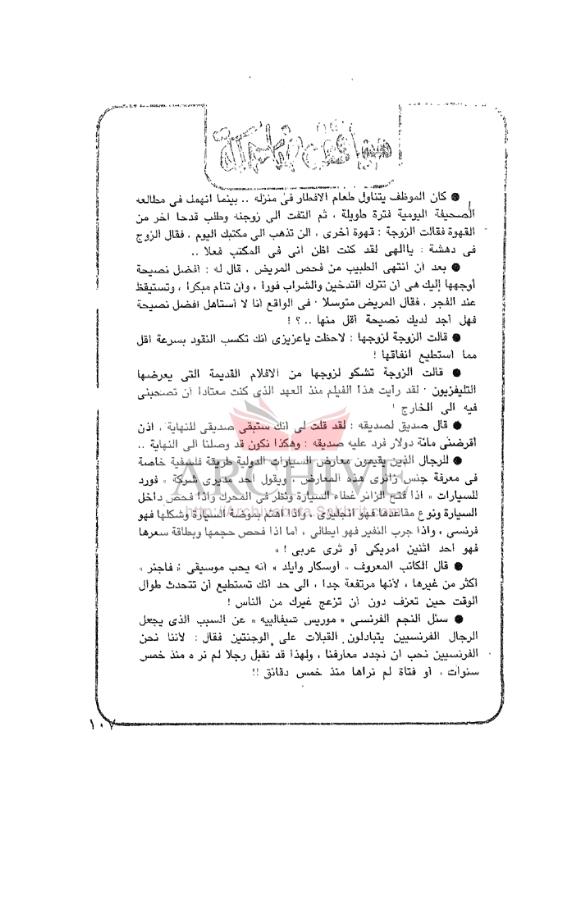 ● كان الموظف يتناول طعام الافطار فى منزله .. بينما انهمك فى مطالعه
الصحيفة اليومية فترة طويلة ، ثم التفت الى زوجته وطلب قدحا آخر من
القهوة فقالت الزوجة : قهوة أخرى ، الن تذهب الى مكتبك اليوم . فقال الزوج
فى دهشة : ياالهى لقد كنت اظن أنى فى المكتب فعلا ..
● بعد أن انتهى الطبيب من فحص المريض ، قال له : أفضل نصيحة
أوجهها إليك هى أن تترك التدخين والشراب فورا ، وأن تنام مبكرا ، وتستيقظ
عند الفجر . فقال المريض متوسلا . فى الواقع أنا لا أستاهل افضل نصيحة
فهل أجد لديك نصيحة أقل منها .. ؟ !
● قالت الزوجة لزوجها : لاحظت ياعزيزى انك تكسب النقود بسرعة أقل
مما استطيع انفاقها !
● قالت الزوجة تشكو لزوجها من الافلام القديمة التى يعرضها
التليفزيون . لقد رأيت هذا الفيلم منذ العهد الذى كنت معتادا أن تصحبنى
فيه الى الخارج !
● قال صديق لصديقه : لقد قلت لى انك ستبقى صديقى للنهاية ، اذن
أقرضنى مائة دولار فرد عليه صديقه : وهكذا نكون قد وصلنا الى النهاية ..
● للرجال الذين يقيمون معارض السيارات الدولية طريقة فلسفية خاصة
فى معرفة جنس زائرى هذه المعارض ، ويقول أحد مديرى شركة « فورد
للسيارات » اذا فتح الزائر غطاء السيارة ونظر فى المحرك واذا فحص داخل
السيارة ونوع مقاعدها فهو انجليزى ، واذا اهتم بموضة السيارة وشكلها فهو
فرنسى ، واذا جرب النفير فهو ايطالى ، أما اذا فحص حجمها وبطاقة سعرها
فهو أحد اثنين أمريكى أو ثرى عربى ! »
● قال الكاتب المعروف « أوسكار وايلد » أنه يحب موسيقى « فاجنر »
أكثر من غيرها ، لأنها مرتفعة جدا ، الى حد انك تستطيع أن تتحدث طوال
الوقت حين تعزف دون أن تزعج غيرك من الناس !
● سئل النجم الفرنسى « موريس شيفالييه » عن السبب الذى يجعل
الرجال الفرنسيين يتبادلون القبلات على الوجنتين فقال : لأننا نحن
الفرنسيين نحب أن نجدد معارفنا ، ولهذا قد نقبل رجلا لم نره منذ خمس
سنوات ، أو فتاة لم نراها منذ خمس دقائق !!
١٠٧
ARCHIVE